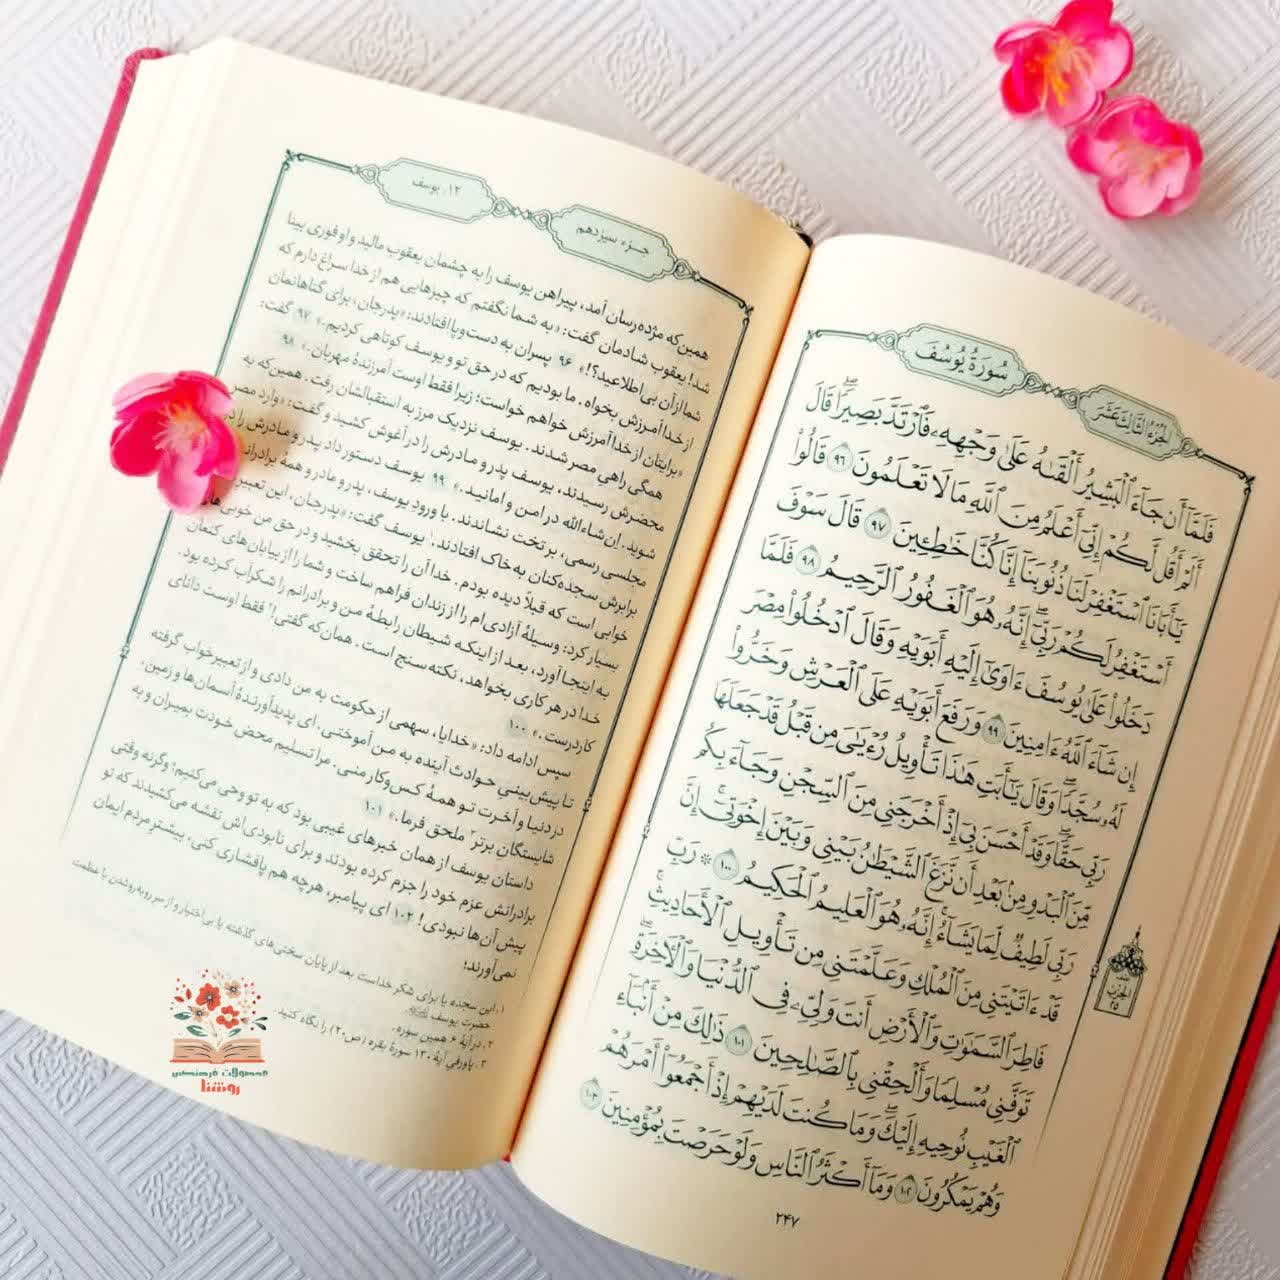 سُورَةُ يُوسُفَ
الجُزءُ الثَّالِثَ عَشَرَ
فَلَمَّآ أَن جَآءَ ٱلْبَشِيرُ أَلْقَىٰهُ عَلَىٰ وَجْهِهِۦ فَٱرْتَدَّ بَصِيرًاۖ قَالَ
أَلَمْ أَقُل لَّكُمْ إِنِّىٓ أَعْلَمُ مِنَ ٱللَّهِ مَا لَا تَعْلَمُونَ ٩٦ قَالُوا۟
يَـٰٓأَبَانَا ٱسْتَغْفِرْ لَنَا ذُنُوبَنَآ إِنَّا كُنَّا خَـٰطِـِٔينَ ٩٧ قَالَ سَوْفَ
أَسْتَغْفِرُ لَكُمْ رَبِّىٓۖ إِنَّهُۥ هُوَ ٱلْغَفُورُ ٱلرَّحِيمُ ٩٨ فَلَمَّا
دَخَلُوا۟ عَلَىٰ يُوسُفَ ءَاوَىٰٓ إِلَيْهِ أَبَوَيْهِ وَقَالَ ٱدْخُلُوا۟ مِصْرَ
إِن شَآءَ ٱللَّهُ ءَامِنِينَ ٩٩ وَرَفَعَ أَبَوَيْهِ عَلَى ٱلْعَرْشِ وَخَرُّوا۟
لَهُۥ سُجَّدًاۖ وَقَالَ يَـٰٓأَبَتِ هَـٰذَا تَأْوِيلُ رُءْيَـٰىَ مِن قَبْلُ قَدْ جَعَلَهَا
رَبِّى حَقًّاۖ وَقَدْ أَحْسَنَ بِىٓ إِذْ أَخْرَجَنِى مِنَ ٱلسِّجْنِ وَجَآءَ بِكُم
مِّنَ ٱلْبَدْوِ مِنۢ بَعْدِ أَن نَّزَغَ ٱلشَّيْطَـٰنُ بَيْنِى وَبَيْنَ إِخْوَتِىٓۚ إِنَّ
رَبِّى لَطِيفٌ لِّمَا يَشَآءُۚ إِنَّهُۥ هُوَ ٱلْعَلِيمُ ٱلْحَكِيمُ ١٠٠ ۞ رَبِّ
قَدْ ءَاتَيْتَنِى مِنَ ٱلْمُلْكِ وَعَلَّمْتَنِى مِن تَأْوِيلِ ٱلْأَحَادِيثِۚ
فَاطِرَ ٱلسَّمَـٰوَٰتِ وَٱلْأَرْضِ أَنتَ وَلِىِّۦ فِى ٱلدُّنْيَا وَٱلْـَٔاخِرَةِۖ
تَوَفَّنِى مُسْلِمًا وَأَلْحِقْنِى بِٱلصَّـٰلِحِينَ ١٠١ ذَٰلِكَ مِنْ أَنۢبَآءِ
ٱلْغَيْبِ نُوحِيهِ إِلَيْكَۖ وَمَا كُنتَ لَدَيْهِمْ إِذْ أَجْمَعُوٓا۟ أَمْرَهُمْ
وَهُمْ يَمْكُرُونَ ١٠٢ وَمَآ أَكْثَرُ ٱلنَّاسِ وَلَوْ حَرَصْتَ بِمُؤْمِنِينَ ١٠٣
الحزب
٢٥
۲۴۷
۱۲. یوسف
جزء سیزدهم
همین‌که مژده‌رسان آمد، پیراهن یوسف را به چشمان یعقوب مالید و او فوری بینا
شد! یعقوب شادمان گفت: «به شما نگفتم که چیزهایی هم از خدا سراغ دارم که
شما از آن بی‌اطلاعید؟!» ۹۶ پسران به دست‌وپا افتادند: «پدرجان! برای گناهانمان
از خدا آمرزش بخواه. ما بودیم که در حق تو و یوسف کوتاهی کردیم.» ۹۷ گفت:
«برایتان از خدا آمرزش خواهم خواست؛ زیرا فقط اوست آمرزندهٔ مهربان.» ۹۸
همگی راهی مصر شدند. یوسف نزدیک مرز به استقبالشان رفت. همین‌که به
محضرش رسیدند، یوسف پدر و مادرش را در آغوش کشید و گفت: «وارد مصر
شوید. ان‌شاءالله در امن و امانید.» ۹۹ یوسف دستور داد پدر و مادرش را در
مجلسی رسمی، بر تخت نشاندند. با ورود یوسف، پدر و مادر و همهٔ برادرانش
برابرش سجده‌کنان به خاک افتادند.۱ یوسف گفت: «پدرجان، این تعبیر
خوابی است که قبلاً دیده بودم. خدا آن را تحقق بخشید و در حق من خوبی‌های
بسیار کرد: وسیلهٔ آزادی‌ام را از زندان فراهم ساخت و شما را از بیابان‌های کنعان
به اینجا آورد، بعد از اینکه شیطان رابطهٔ من و برادرانم را شکرآب کرده بود.
خدا در هر کاری بخواهد، نکته‌سنج است. همان‌که گفتی!۲ فقط اوست دانای
کاردرست.» ۱۰۰
سپس ادامه داد: «خدایا، سهمی از حکومت به من دادی و از تعبیر خواب گرفته
تا پیش‌بینیِ حوادث آینده به من آموختی. ای پدیدآورندهٔ آسمان‌ها و زمین،
در دنیا و آخرت تو همهٔ کس‌وکار منی. مرا تسلیم محض خودت بمیران و به
شایستگانِ برتر۳ ملحق فرما.» ۱۰۱
داستان یوسف از همان خبرهای غیبی بود که به تو وحی می‌کنیم؛ وگرنه وقتی
برادرانش عزم خود را جزم کرده بودند و برای نابودی‌اش نقشه می‌کشیدند که تو
پیش آن‌ها نبودی! ۱۰۲ ای پیامبر، هرچه هم پافشاری کنی، بیشتر مردم ایمان
نمی‌آورند!
۱. این سجده یا برای شکر خداست بعد از پایان سختی‌های گذشته یا بی‌اختیار و از سر روبه‌روشدن با عظمت
حضرت یوسف
۲. در آیهٔ ۶ همین سوره.
۳. پاورقیِ آیهٔ ۱۳۰ سورهٔ بقره (ص۲۰) را نگاه کنید.
محصولات فرهنگی
روشنا